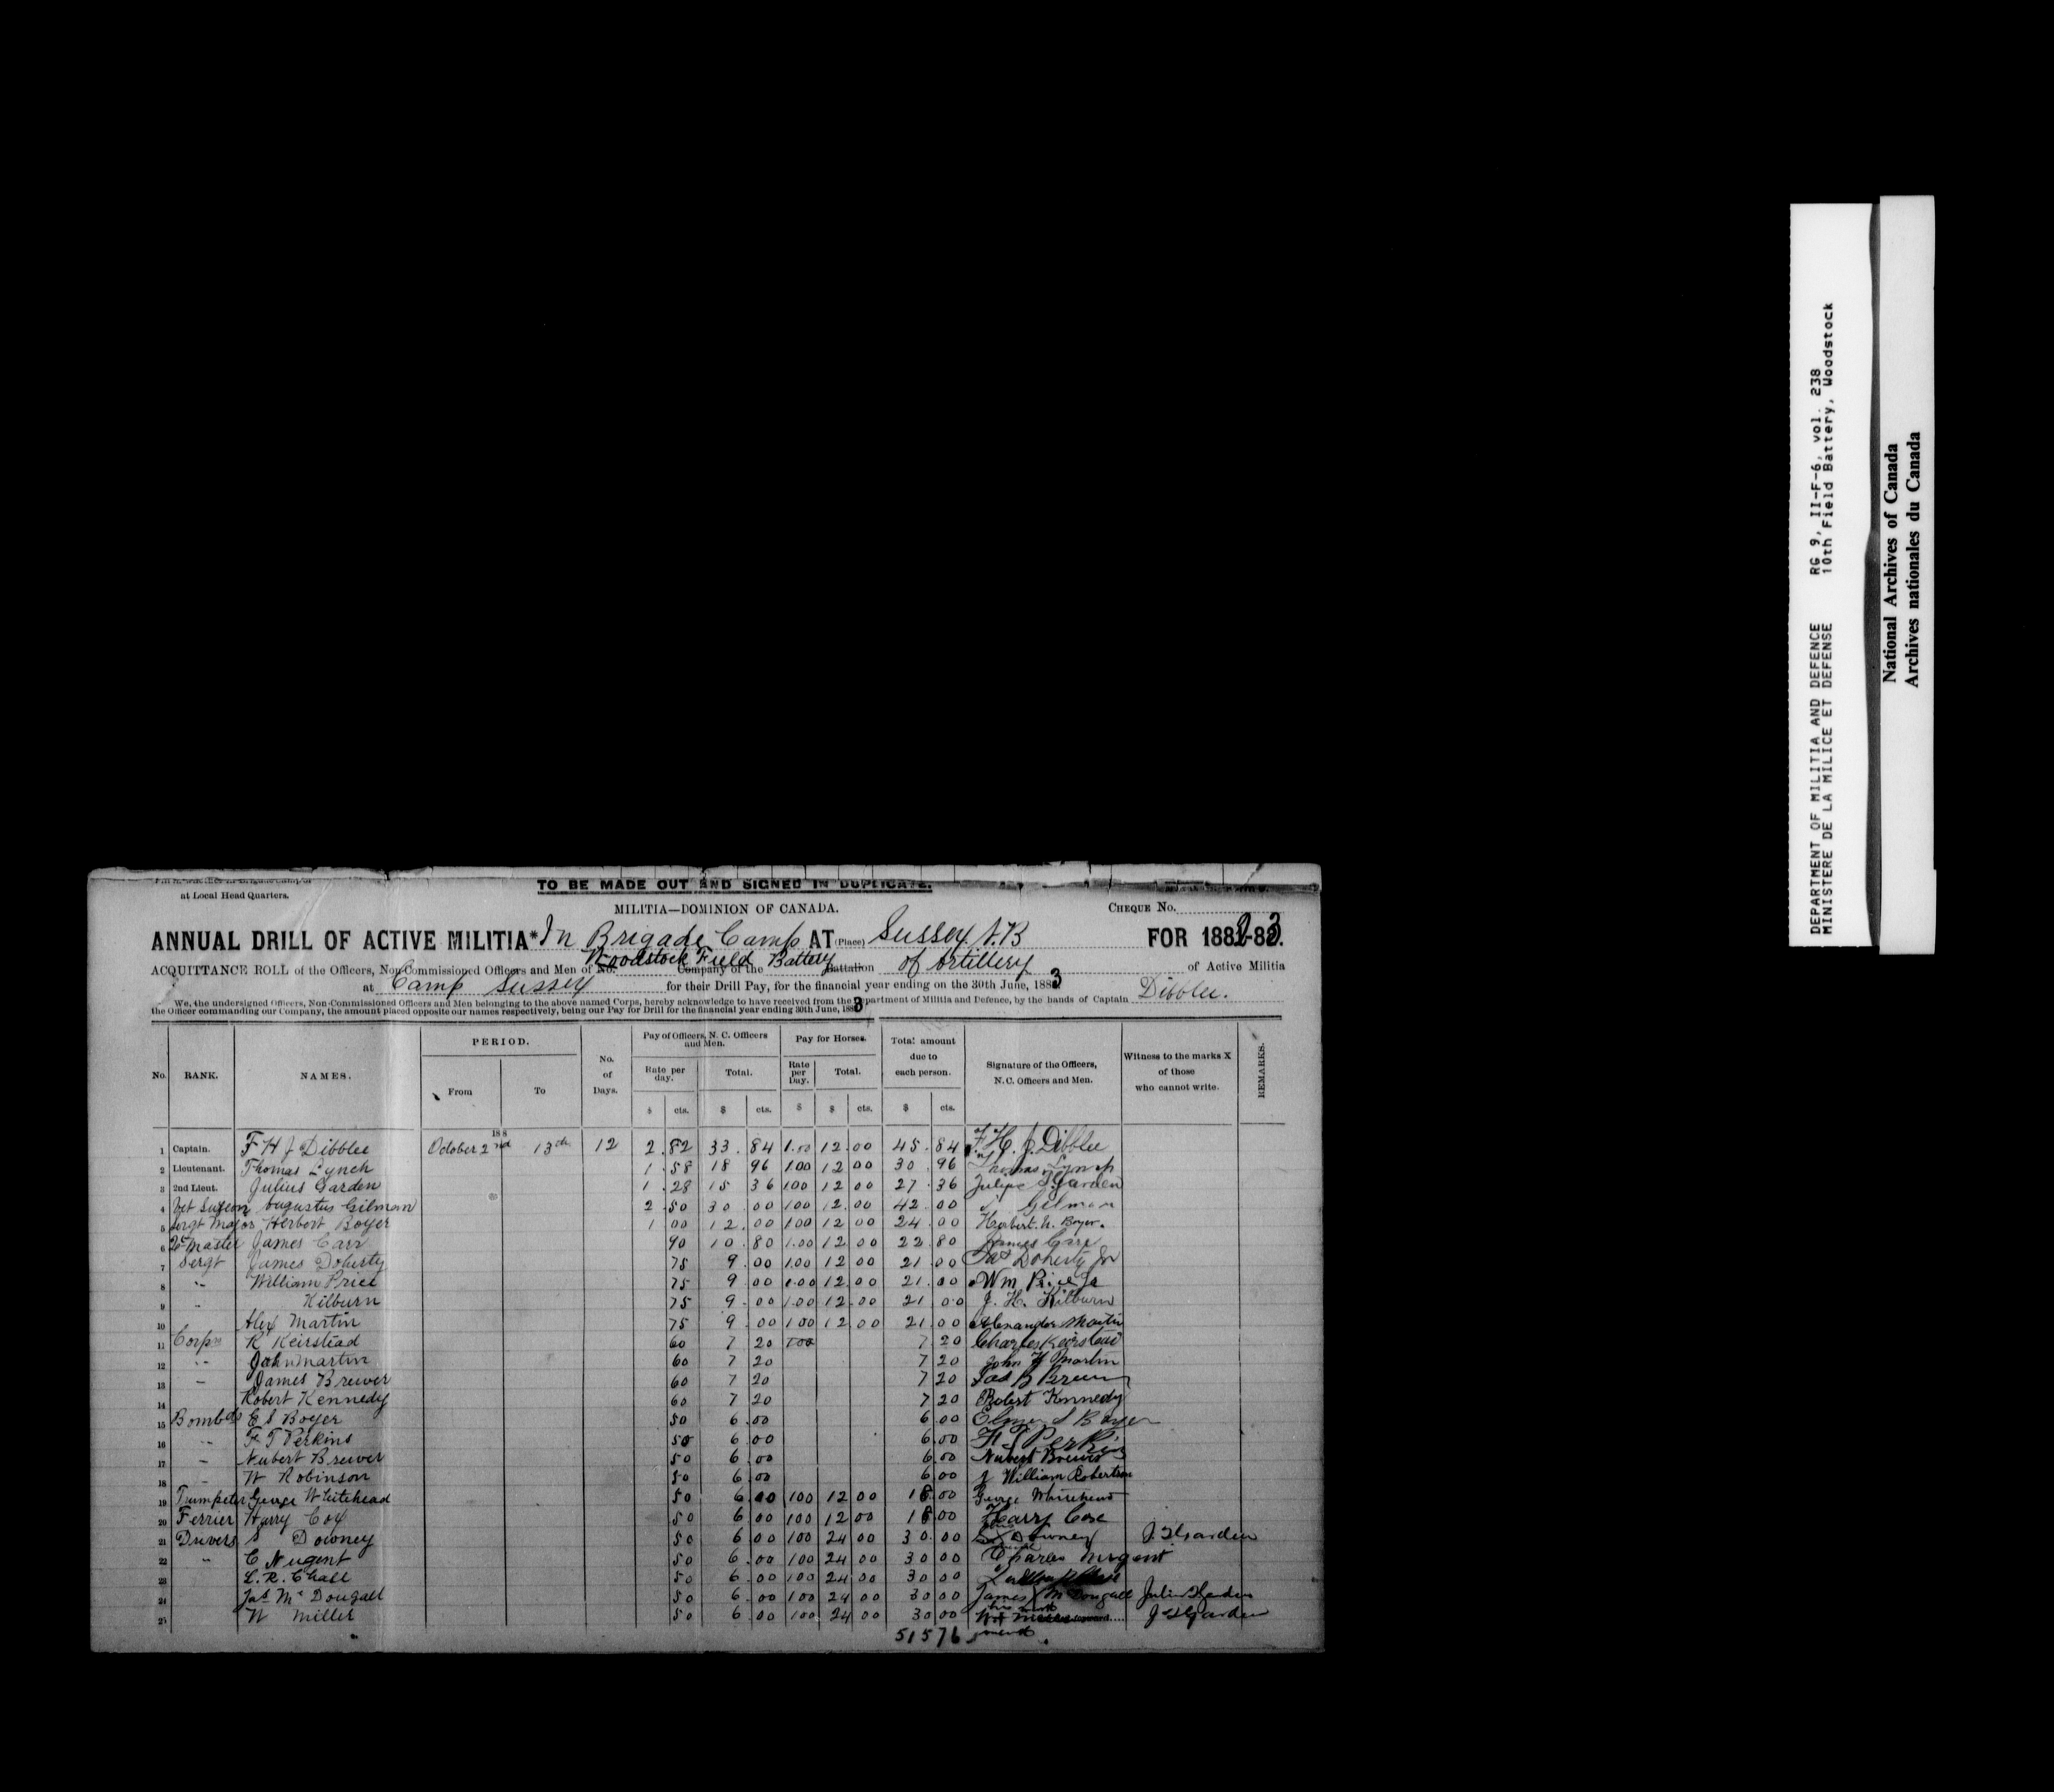 at Local Head Quarters.
TO BE MADE OUT AND SIGNED IN DUPLICATE.
MILITIA—DOMINION OF CANADA.
CHEQUE No.
ANNUAL DRILL OF ACTIVE MILITIA* In Brigade Camp AT (Place) Sussex N.B FOR 1882-83.
ACQUITTANCE ROLL of the Officers, Non-Commissioned Officers and Men of No. Woodstock Field Battery Company of the Battalion of Artillery of Active Militia
at Camp Sussex for their Drill Pay, for the financial year ending on the 30th June, 1883
We, the undersigned Officers, Non-Commissioned Officers and Men belonging to the above named Corps, hereby acknowledge to have received from the Department of Militia and Defence, by the hands of Captain Dibblee.
the Officer commanding our Company, the amount placed opposite our names respectively, being our Pay for Drill for the financial year ending 30th June, 1883
No. RANK. NAMES. PERIOD. From To No. of Days. Pay of Officers, N. C. Officers and Men. Rate per day. Total. Pay for Horses. Rate per Day. Total. Total amount due to each person. Signature of the Officers, N. C. Officers and Men. Witness to the marks X of those who cannot write. REMARKS.
$ cts. $ cts. $ $ cts. $ cts.
188
1 Captain. F H J Dibblee October 2nd 13th 12 2.82 33.84 1.00 12.00 45.84 F. H. J. Dibblee
2 Lieutenant. Thomas Lynch 1.58 18 96 100 12 00 30.96 Thomas Lynch
3 2nd Lieut. Julius Garden 1.28 15.36 100 12 00 27.36 Julius Garden
4 Vet Surgeon Augustus Gilman 2.50 30.00 100 12.00 42.00 Gilman
5 Sergt Major Herbert Boyer 1 00 12.00 100 12 00 24.00 Herbert. N. Boyer.
6 Qr Master James Carr 90 10.80 1.00 12.00 22.80 James Carr
7 Sergt James Doherty 75 9.00 100 12 00 21.00 Jas Doherty Jr
8 " William Price 75 9 00 1.00 12.00 21.00 Wm Price Jr
9 " Kilburn 75 9.00 1.00 12.00 21 00 J. H. Kilburn
10 Alex Martin 75 9.00 100 12.00 21.00 Alexander Martin
11 Corpls R Keirstead 60 7 20 100 7.20 Charles Keirstead
12 " John Martin 60 7 20 7 20 John Martin
13 " James Brewer 60 7 20 7 20 Jas B Brewer
14 Robert Kennedy 60 7 20 7 20 Robert Kennedy
15 Bombds E S Boyer 50 6.00 6.00 Elmer S Boyer
16 " F T Perkins 50 6.00 6.00 F T Perkins
17 " Nubert Brewer 50 6.00 6.00 Nubert Brewer
18 " W Robinson 50 6.00 6 00 William Robertson
19 Trumpeter George Whitehead 50 6.00 100 12 00 18.00 George Whitehead
20 Ferrier Harry Cox 50 6.00 100 12 00 18 00 Harry Coxe
21 Drivers S Downey 50 6 00 100 24 00 30.00 Downey J. Garden
22 " C Nugent 50 6.00 100 24 00 30 00 Charles Nugent
23 L. R. Chase 50 6.00 100 24 00 30 00
24 Jas McDougall 50 6.00 100 24 00 30 00 James McDougall Julius Garden
25 W Miller 50 6 00 100 24 00 30 00 his mark J Garden
515 76
DEPARTMENT OF MILITIA AND DEFENCE RG 9, II-F-6, vol. 238
MINISTERE DE LA MILICE ET DEFENSE 10th Field Battery, Woodstock
National Archives of Canada
Archives nationales du Canada